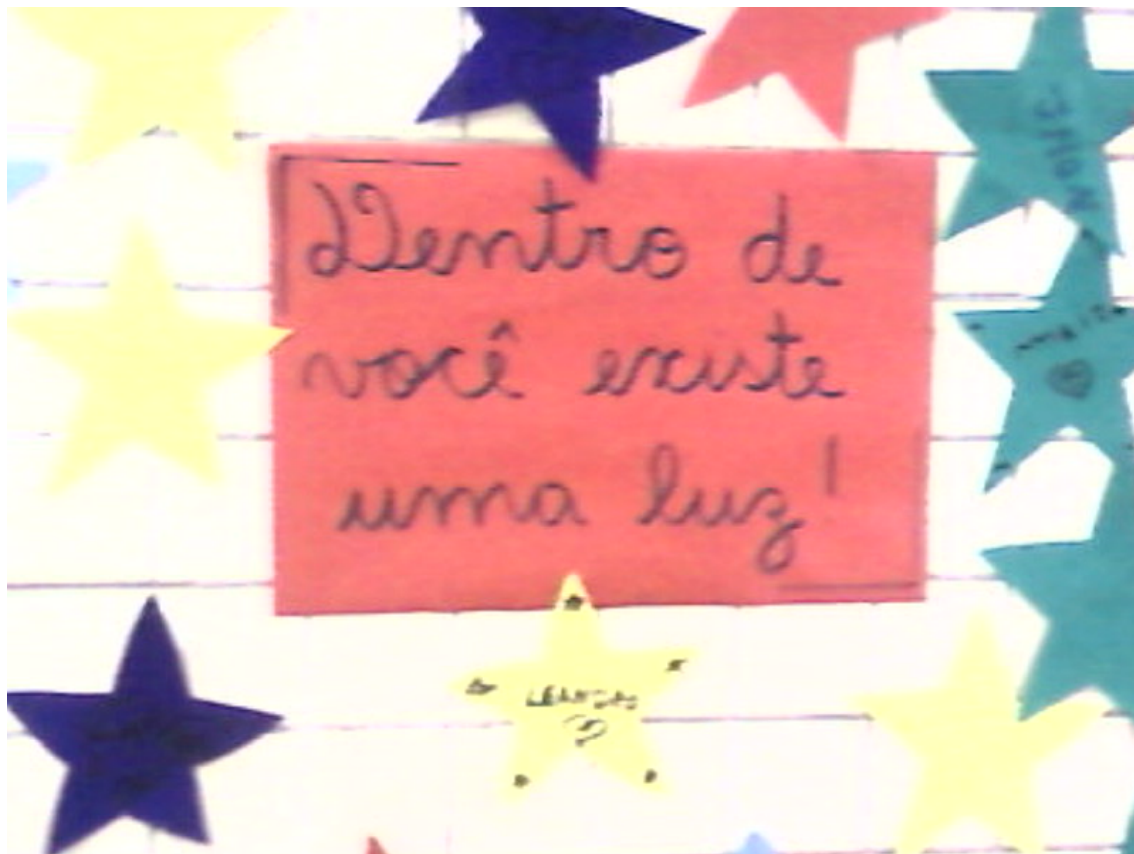 Dentro de
você existe
uma luz!